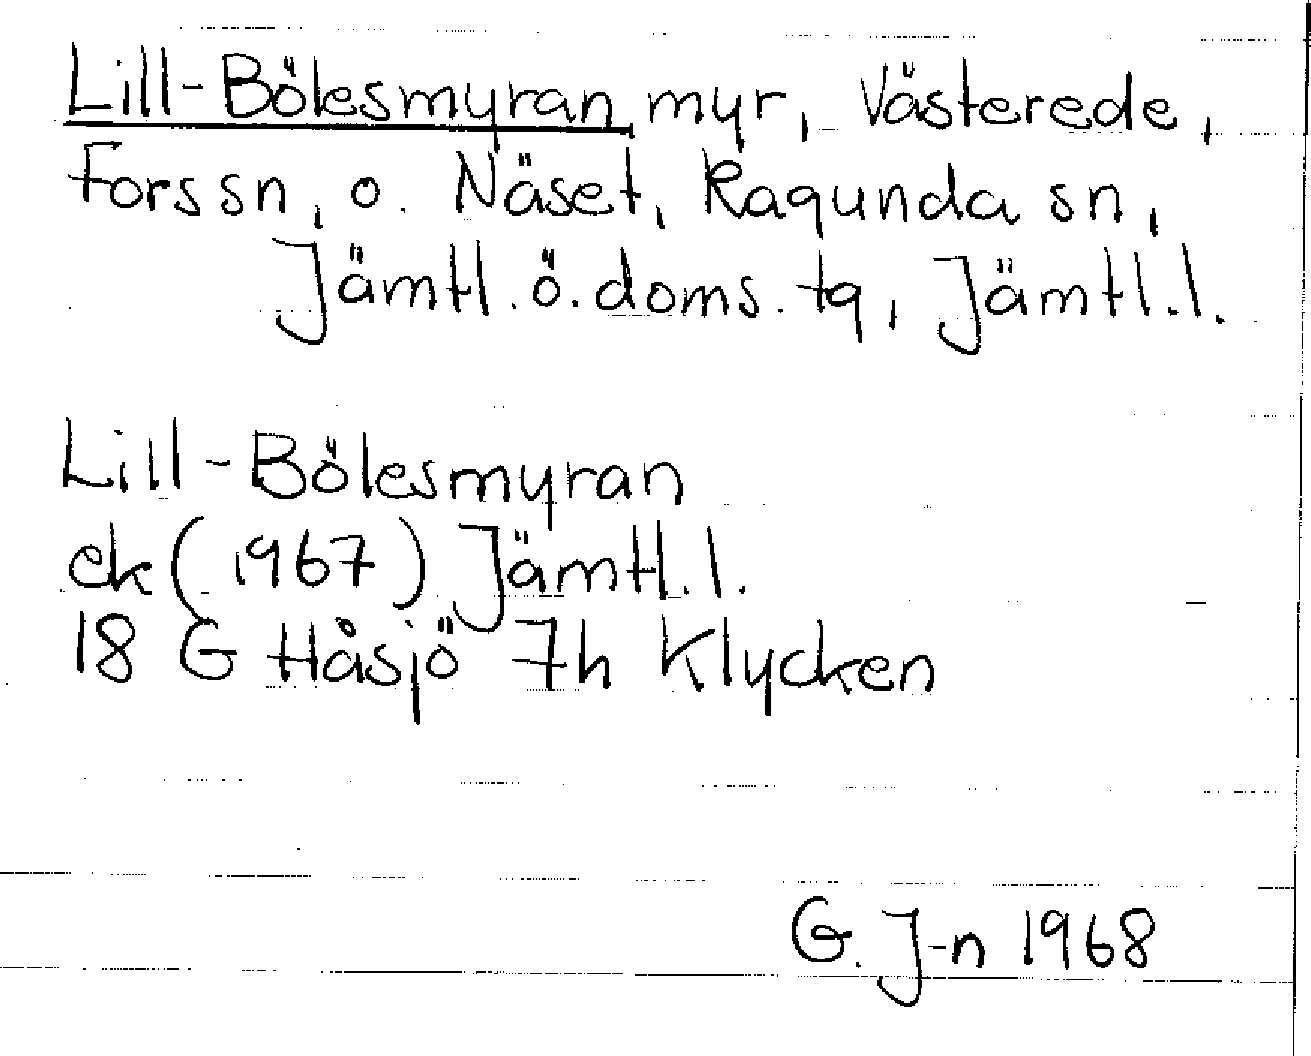 Lill-Bölesmyran myr, Västerede,
Fors sn, o. Näset, Ragunda sn,
Jämtl. ö. doms. tg, Jämtl. l.
Lill-Bölesmyran
ek (1967) Jämtl. l.
18 G Håsjö 7h Klycken
G. J-n 1968